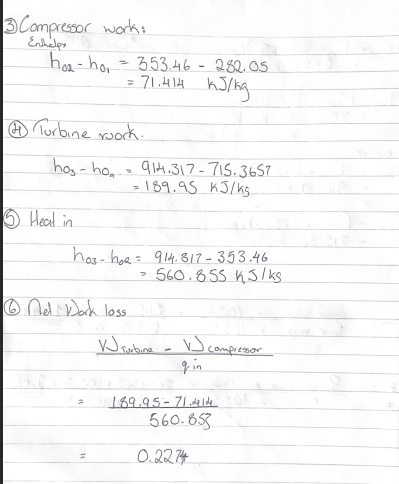 ③ Compressor work:
Enthalpy
h02 - h01 = 353.46 - 282.05
= 71.414 KJ/kg
④ Turbine work.
h03 - h04 = 914.317 - 715.3657
= 189.95 KJ/kg
⑤ Heat in
h03 - h02 = 914.317 - 353.46
= 560.855 KJ/kg
⑥ Net Work loss
W Turbine - W compressor
q in
= 189.95 - 71.414
560.855
= 0.2274